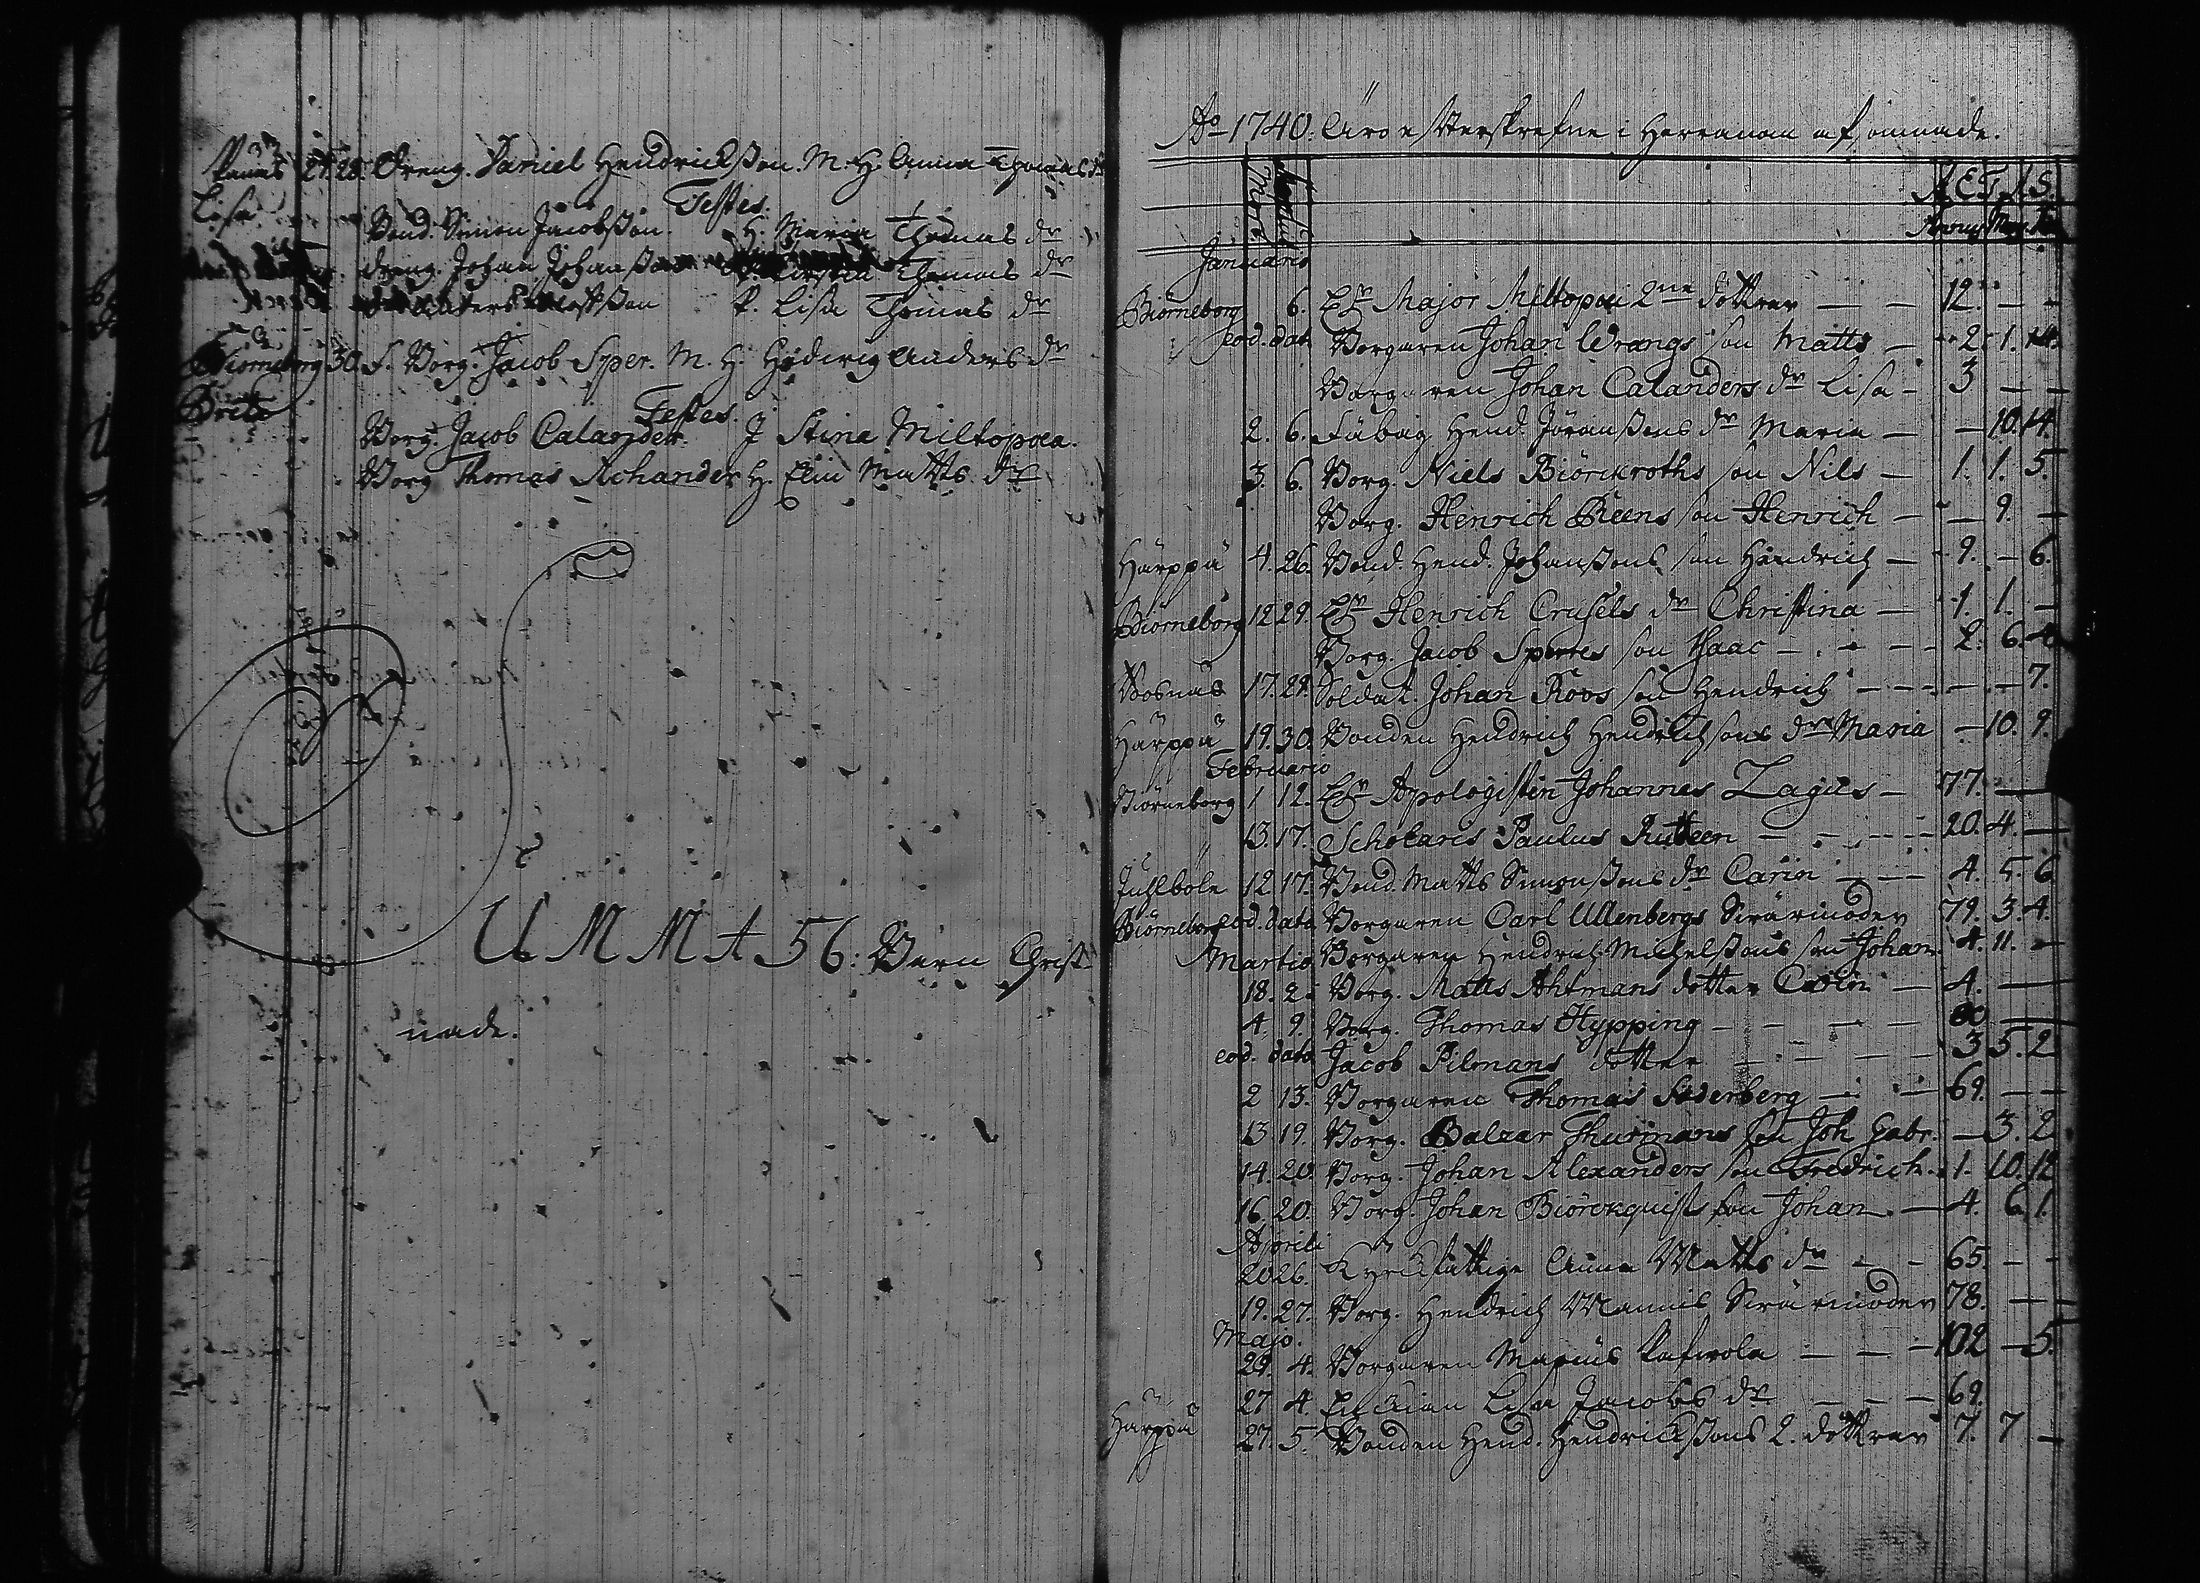 27. 28. Dreng. Daniel Hendrichsson. M. H. Anna Thomas dr
Lisa
Testes.
Bond. Simon Jacobsson. H. Maria Thomas dr
dreng. Johan Johansson Thomas dr
Mattsson P. Lisa Thomas dr
Biörneborg 30. S. Borg. Jacob Sper. M. H. Hedwig Anders dr
Brita
Testes.
Borg. Jacob Calander. J Stina Miltopoea.
Borg Thomas Achander H. Elin Matts dr
UMMA 56: Barn Christ-
nade.
Ao 1740. Äro effterskrefne i Herranom afsomnade.
ÆTAS
Januario
Biörneborg 6. Hr Major Miltopaei 2ne döttrar — — 12. — —
eod. dat Borgaren Johan Wrangs son Matts — 2. 1. 14.
Borgaren Johan Calanders dr Lisa — 3 — —
2. 6. Hend. Johanssons dr Maria — — 10. 14.
3. 6. Borg. Niels Biörckroths son Nils — 1. 1. 5.
Borg. Henrich Reens son Henrich — — 9. —
Härppä 4. 26. Bond. Hend. Johanssons son Hindrich — 9. — 6.
Biörneborg 12 29. Hr Henrich Crusels dr Christina — 1. 1. —
Borg. Jacob Sperres son Isaac — 2. 6. 4
Bosnäs 17. 29. Soldat. Johan Roos son Hendrich — — — — 7.
Härppä 19. 30. Bonden Hendrich Hendrichsons dr Maria — 10. 9.
Februario
Biörneborg 1 12. Hr Apologisten Johannes Zagus — 77. —
13. 17. Scholaris Paulus Rutteen — 20. 4. —
Juhlböle 12. 17. Bond. Matts Simonssons dr Carin — 4. 5. 6
Biörneborg eod. data Borgaren Carl Ullenbergs Swärmoder 79. 3. 4.
Martio Borgaren Hendrich Michelssons son Johan 4. 11. —
18. 2. Borg. Matts Ahlmans dotter Carin — 4. —
4. 9. Borg. Thomas Hypping — — — 80 —
eod. data Jacob Pilmans dotter — — — 3 5. 2
2 13. Borgaren Thomas Söderberg — 69. — —
13 19. Borg. Balzar Thurmans son Joh Gabr. — 3. 2
14. 20. Borg. Johan Alexanders son Fredrich. 1. 10. 12
16. 20. Borg. Johan Biörckquists son Johan. — 4. 6. 1.
Aprili
20 26. Anna Matts dr — — 65. — —
19. 27. Borg. Hendrich Mannis Swärmoder 78. — —
Majo.
29. 4. Borgaren Marcus — — 102 — 5.
27 4. Lisa Jacobs dr — — — 69.
Härppä 27. 5. Bonden Hend. Hendrickssons 2. döttrar 7. 7 —